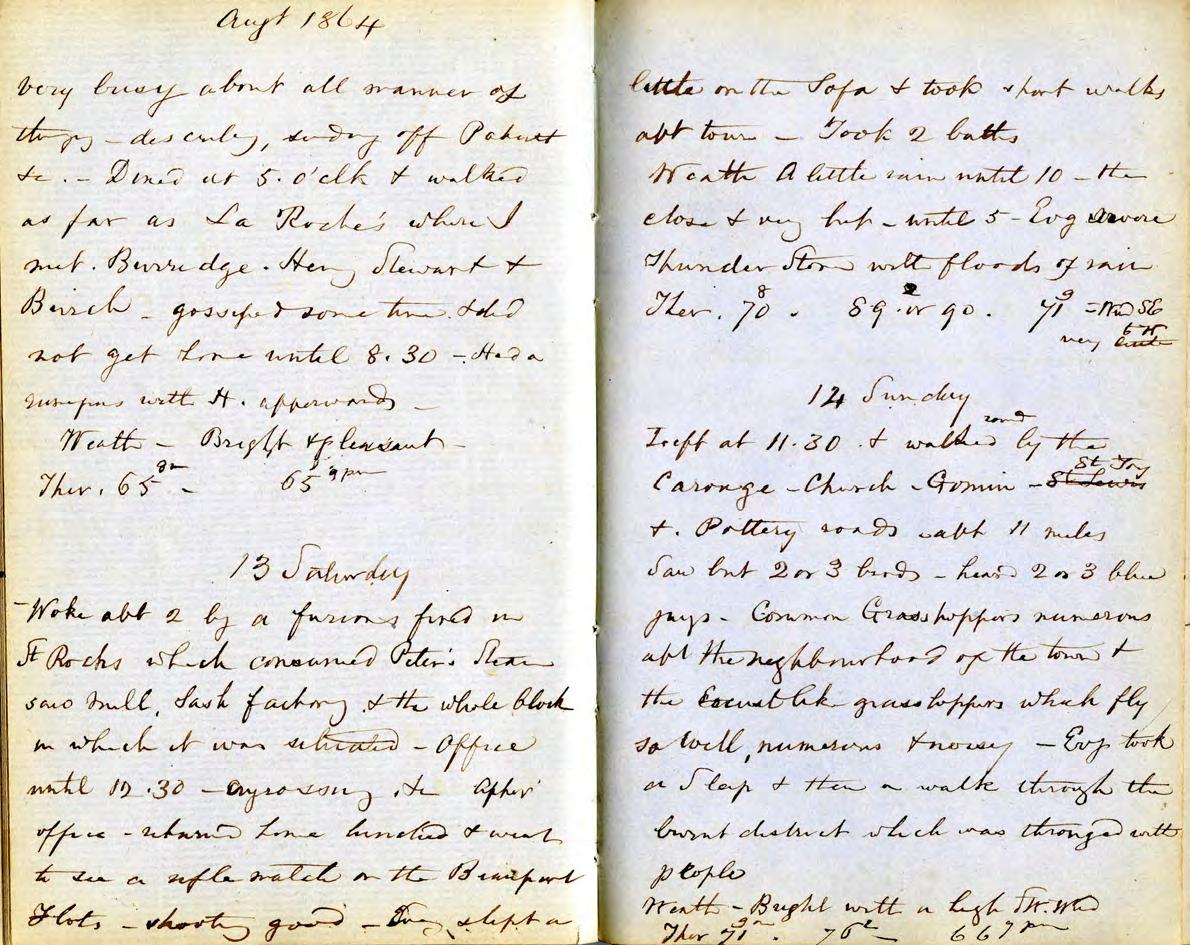 Augt 1864
very busy about all manner of
things - describg, sending off Patent
&c. - Dined at 5. o'clk & walked
as far as La Roche's where I
met. Burridge. Heny Stewart &
Birch - gossiped some time & did
not get home until 8.30 - Had a
rumpus with H. afferwards -
Weath - Bright & pleasant -
Ther. 65 - 65 9 pm
13 Saturday
- Woke abt 2 by a furious fire in
St Rochs which consumed Peter's Steam
saw mill, Sash factory & the whole block
in which it was situated - Office
until 12.30 - engrossing &c After
office - returned home lunched & went
to see a rifle match on the Beauport
Flats - shooting good - Evg slept a
little on the Sofa & took short walks
abt town - Took 2 baths
Weath A little rain until 10 - then
close & very hot - until 5 - Evg severe
Thunder Storm with floods of rain
8 2 9
Ther. 70 . 89 or 90 . 71 - Wnd SE
very little
14 Sunday
round
Left at 11.30 & walked by the
St Foy
Carouge - Church - Gomin - St Lewis
&. Pottery roads abt 11 miles
Saw but 2 or 3 birds - heard 2 or 3 blue
jays - Common Grasshoppers numerous
abt the neighbourhood of the town &
the Locust like grasshoppers which fly
so well, numerous & noisy - Evg took
a Sleep & then a walk through the
burnt district which was thronged with
people
Weath - Bright with a high SW. Wnd
Ther 71 . 76 - 66 9 pm